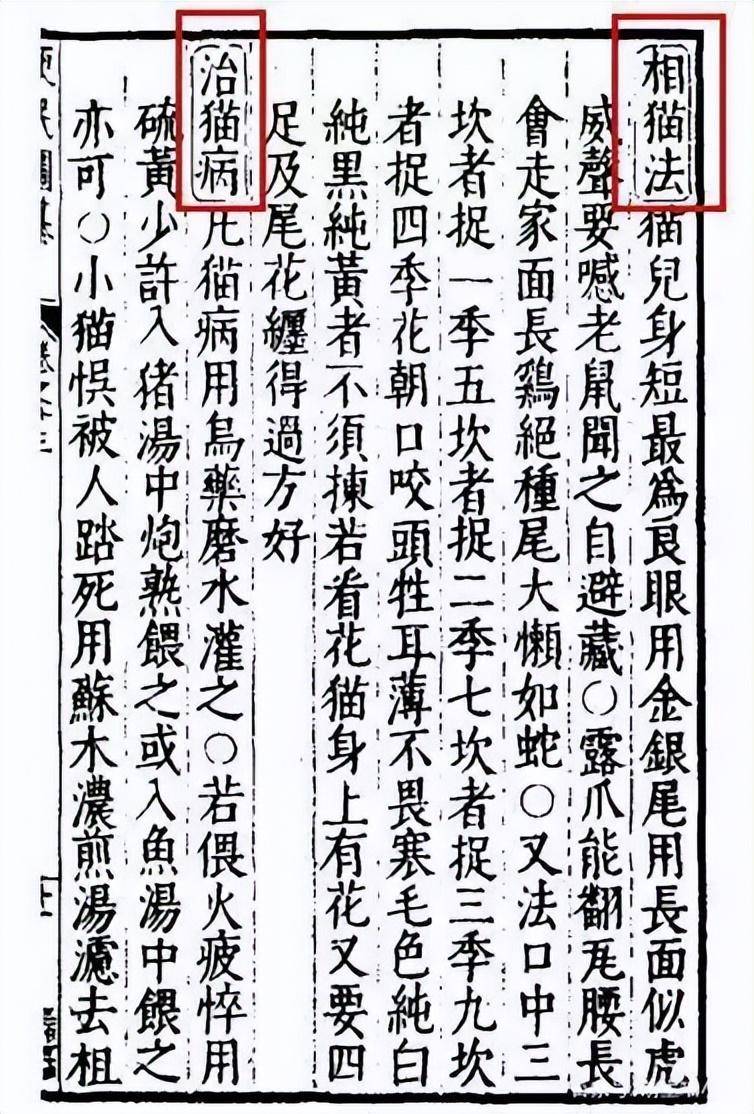 相猫法猫兒身短最爲良眼用金銀尾用長面似虎
威聲要喊老鼠聞之自避藏○露爪能翻瓦腰長
會走家面長鷄絕種尾大懶如蛇○又法口中三
坎者捉一季五坎者捉二季七坎者捉三季九坎
者捉四季花朝口咬頭牲耳薄不畏寒毛色純白
純黑純黃者不須揀若看花猫身上有花又要四
足及尾花纏得過方好
治猫病凡猫病用烏藥磨水灌之○若偎火疲悴用
硫黃少許入猪湯中炮熟餵之或入魚湯中餵之
亦可○小猫悞被人踏死用蘇木濃煎湯濾去柤
卷之十三